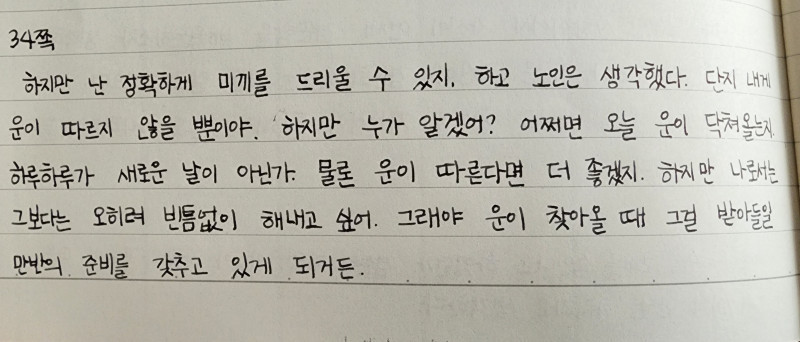 34쪽
하지만 난 정확하게 미끼를 드리울 수 있지, 하고 노인은 생각했다. 단지 내게
운이 따르지 않을 뿐이야. 하지만 누가 알겠어? 어쩌면 오늘 운이 닥쳐올는지.
하루하루가 새로운 날이 아닌가. 물론 운이 따른다면 더 좋겠지. 하지만 나로서는
그보다는 오히려 빈틈없이 해내고 싶어. 그래야 운이 찾아올 때 그걸 받아들일
만반의 준비를 갖추고 있게 되거든.